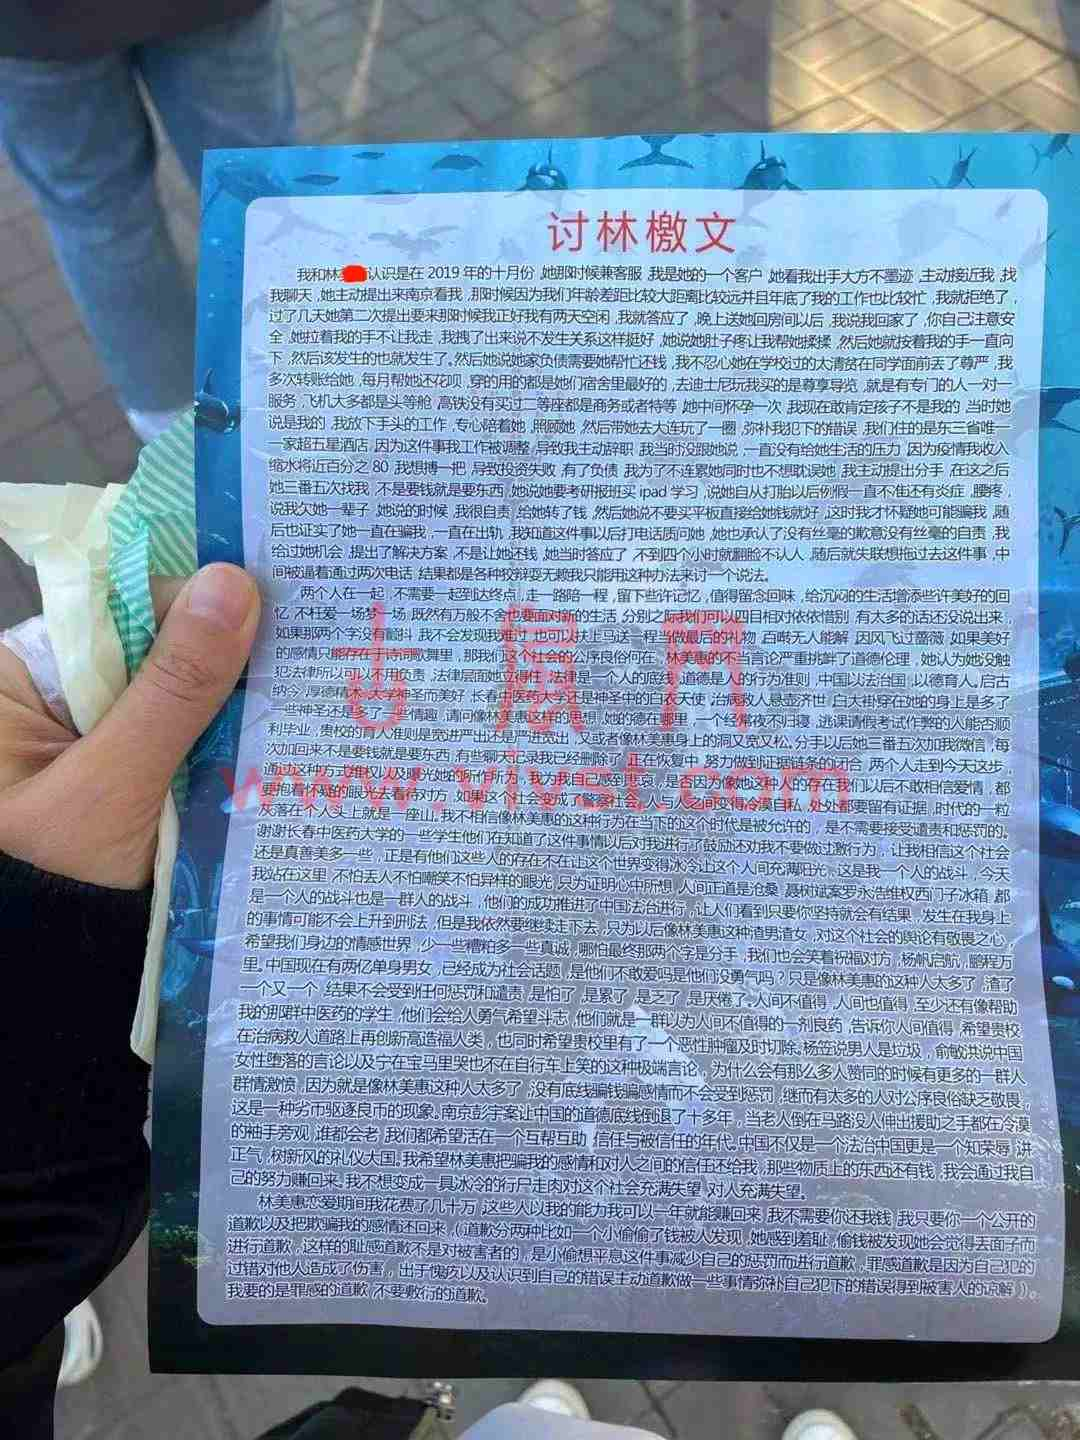 讨林檄文
我和林 认识是在 2019 年的十月份,她那时候兼客服,我是她的一个客户,她看我出手大方不墨迹,主动接近我,找
我聊天,她主动提出来南京看我,那时候因为我们年龄差距比较大距离比较远并且年底了我的工作也比较忙,我就拒绝了,
过了几天她第二次提出要来那时候我正好我有两天空闲,我就答应了,晚上送她回房间以后,我说我回家了,你自己注意安
全,她拉着我的手不让我走,我拽了出来说不发生关系这样挺好,她说她肚子疼让我帮她揉揉,然后她就按着我的手一直向
下,然后该发生的也就发生了。然后她说她家负债需要她帮忙还钱,我不忍心她在学校过的太清贫在同学面前丢了尊严,我
多次转账给她,每月帮她还花呗,穿的用的都是她们宿舍里最好的,去迪士尼玩我买的是尊享导览,就是有专门的人一对一
服务,飞机大多都是头等舱,高铁没有买过二等座都是商务或者特等,她中间怀孕一次,我现在敢肯定孩子不是我的,当时她
说是我的,我放下手头的工作,专心陪着她,照顾她,然后带她去大连玩了一圈,弥补我犯下的错误,我们住的是东三省唯一
一家超五星酒店,因为这件事我工作被调整,导致我主动辞职,我当时没跟她说,一直没有给她生活的压力,因为疫情我收入
缩水将近百分之 80,我想搏一把,导致投资失败,有了负债,我为了不连累她同时也不想耽误她,我主动提出分手,在这之后
她三番五次找我,不是要钱就是要东西,她说她要考研报班买 ipad 学习,说她自从打胎以后例假一直不准还有炎症,腰疼,
说我欠她一辈子,她说的时候,我很自责,给她转了钱,然后她说不要买平板直接给她钱就好,这时我才怀疑她可能骗我,随
后也证实了她一直在骗我,一直在出轨,我知道这件事以后打电话质问她,她也承认了没有丝毫的歉意没有丝毫的自责,我
给过她机会,提出了解决方案,不是让她还钱,她当时答应了,不到四个小时就翻脸不认人,随后就失联想拖过去这件事,中
间被逼着通过两次电话,结果都是各种狡辩耍无赖我只能用这种办法来讨一个说法。
两个人在一起,不需要一起到达终点,走一路陪一程,留下些许记忆,值得留念回味,给沉闷的生活增添些许美好的回
忆,不枉爱一场梦一场,既然有万般不舍也要面对新的生活,分别之际我们可以四目相对依依惜别,有太多的话还没说出来,
如果那两个字没有颤抖,我不会发现我难过,也可以扶上马送一程当做最后的礼物,百啭无人能解,因风飞过蔷薇,如果美好
的感情只能存在于诗词歌舞里,那我们这个社会的公序良俗何在,林美惠的不当言论严重挑衅了道德伦理,她认为她没触
犯法律所以可以不用负责,法律层面她立得住,法律是一个人的底线,道德是人的行为准则,中国以法治国,以德育人。启古
纳今,厚德精术,大学神圣而美好,长春中医药大学还是神圣中的白衣天使,治病救人悬壶济世,白大褂穿在她的身上是多了
一些神圣还是多了一些情趣,请问像林美惠这样的思想,她的德在哪里,一个经常夜不归寝,逃课请假考试作弊的人能否顺
利毕业,贵校的育人准则是宽进严出还是严进宽出,又或者像林美惠身上的洞又宽又松。分手以后她三番五次加我微信,每
次加回来不是要钱就是要东西,有些聊天记录我已经删除了,正在恢复中,努力做到证据链条的闭合,两个人走到今天这步,
通过这种方式维权以及曝光她的所作所为,我为我自己感到悲哀,是否因为像她这种人的存在我们以后不敢相信爱情,都
要抱着怀疑的眼光去看待对方,如果这个社会变成了警察社会,人与人之间变得冷漠自私,处处都要留有证据,时代的一粒
灰落在个人头上就是一座山。我不相信像林美惠的这种行为在当下的这个时代是被允许的,是不需要接受谴责和惩罚的。
谢谢长春中医药大学的一些学生他们在知道了这件事情以后对我进行了鼓励还劝我不要做过激行为,让我相信这个社会
还是真善美多一些,正是有他们这些人的存在不在让这个世界变得冰冷让这个人间充满阳光。这是我一个人的战斗,今天
我站在这里,不怕丢人不怕嘲笑不怕异样的眼光,只为证明心中所想,人间正道是沧桑,聂树斌案罗永浩维权西门子冰箱,都
是一个人的战斗也是一群人的战斗,他们的成功推进了中国法治进行,让人们看到只要你坚持就会有结果,发生在我身上
的事情可能不会上升到刑法,但是我依然要继续走下去,只为以后像林美惠这种渣男渣女,对这个社会的舆论有敬畏之心,
希望我们身边的情感世界,少一些糟粕多一些真诚,哪怕最终那两个字是分手,我们也会笑着祝福对方,杨帆启航,鹏程万
里。中国现在有两亿单身男女,已经成为社会话题,是他们不敢爱吗是他们没勇气吗?只是像林美惠的这种人太多了,渣了
一个又一个,结果不会受到任何惩罚和谴责,是怕了,是累了,是乏了,是厌倦了。人间不值得,人间也值得,至少还有像帮助
我的那群中医药的学生,他们会给人勇气希望斗志,他们就是一群以为人间不值得的一剂良药,告诉你人间值得,希望贵校
在治病救人道路上再创新高造福人类,也同时希望贵校里有了一个恶性肿瘤及时切除。杨笠说男人是垃圾,俞敏洪说中国
女性堕落的言论以及宁在宝马里哭也不在自行车上笑的这种极端言论,为什么会有那么多人赞同的时候有更多的一群人
群情激愤,因为就是像林美惠这种人太多了,没有底线骗钱骗感情而不会受到惩罚,继而有太多的人对公序良俗缺乏敬畏,
这是一种劣币驱逐良币的现象。南京彭宇案让中国的道德底线倒退了十多年,当老人倒在马路没人伸出援助之手都在冷漠
的袖手旁观,谁都会老,我们都希望活在一个互帮互助,信任与被信任的年代。中国不仅是一个法治中国更是一个知荣辱,讲
正气,树新风的礼仪大国。我希望林美惠把骗我的感情和对人之间的信任还给我,那些物质上的东西还有钱,我会通过我自
己的努力赚回来。我不想变成一具冰冷的行尸走肉对这个社会充满失望,对人充满失望。
林美惠恋爱期间我花费了几十万,这些人以我的能力我可以一年就能赚回来,我不需要你还我钱,我只要你一个公开的
道歉以及把欺骗我的感情还回来,(道歉分两种比如一个小偷偷了钱被人发现,她感到羞耻,偷钱被发现她会觉得丢面子而
进行道歉,这样的耻感道歉不是对被害者的,是小偷想平息这件事减少自己的惩罚而进行道歉,罪感道歉是因为自己犯的
过错对他人造成了伤害,出于愧疚以及认识到自己的错误主动道歉做一些事情弥补自己犯下的错误得到被害人的谅解))。
我要的是罪感的道歉,不要敷衍的道歉。